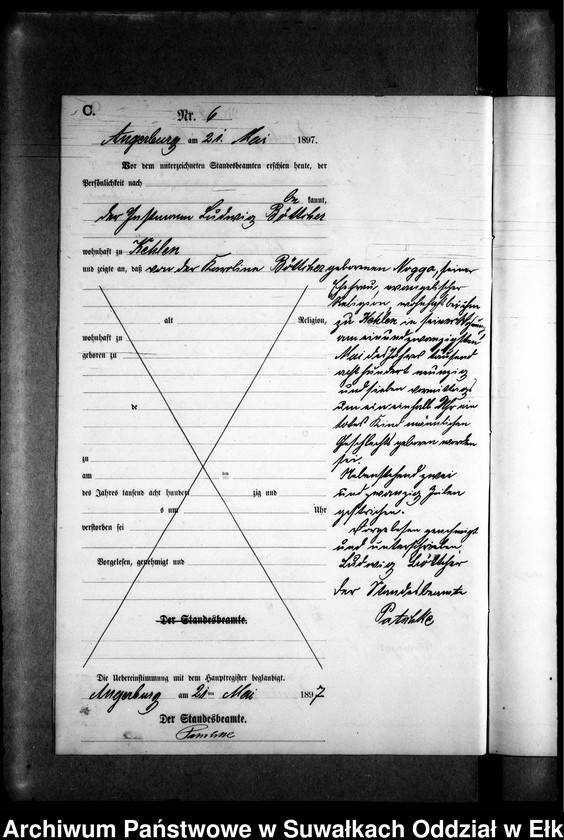 C.
Nr. 6
Angerburg am 21. Mai 1897.
Vor dem unterzeichneten Standesbeamten erschien heute, der
Persönlichkeit nach
be kannt,
der Instmann Ludwig Böttcher
wohnhaft zu Kehlen
und zeigte an, daß von der Karoline Böttcher geborenen Rogga, seiner
Ehefrau, evangelischer
Religion, wohnhaft bei ihm
zu Kehlen in seiner Wohnung
am einundzwanzigsten
Mai des Jahres tausend
acht hundert neunzig
und sieben vormittags
um ein einhalb Uhr ein
todtes Kind männlichen
Geschlechts geboren worden
sei.
Nebenstehend zwei
und zwanzig Zeilen
gestrichen.
Vorgelesen genehmigt
und unterschrieben
Ludwig Böttcher
Der Standesbeamte
alt Religion,
wohnhaft zu
geboren zu
de
zu
am ten
des Jahres tausend acht hundert zig und
s um Uhr
verstorben sei
Vorgelesen, genehmigt und
Der Standesbeamte.
Die Uebereinstimmung mit dem Hauptregister beglaubigt.
Angerburg am 21ten Mai 1897
Der Standesbeamte.
Archiwum Państwowe w Suwałkach Oddział w Ełk